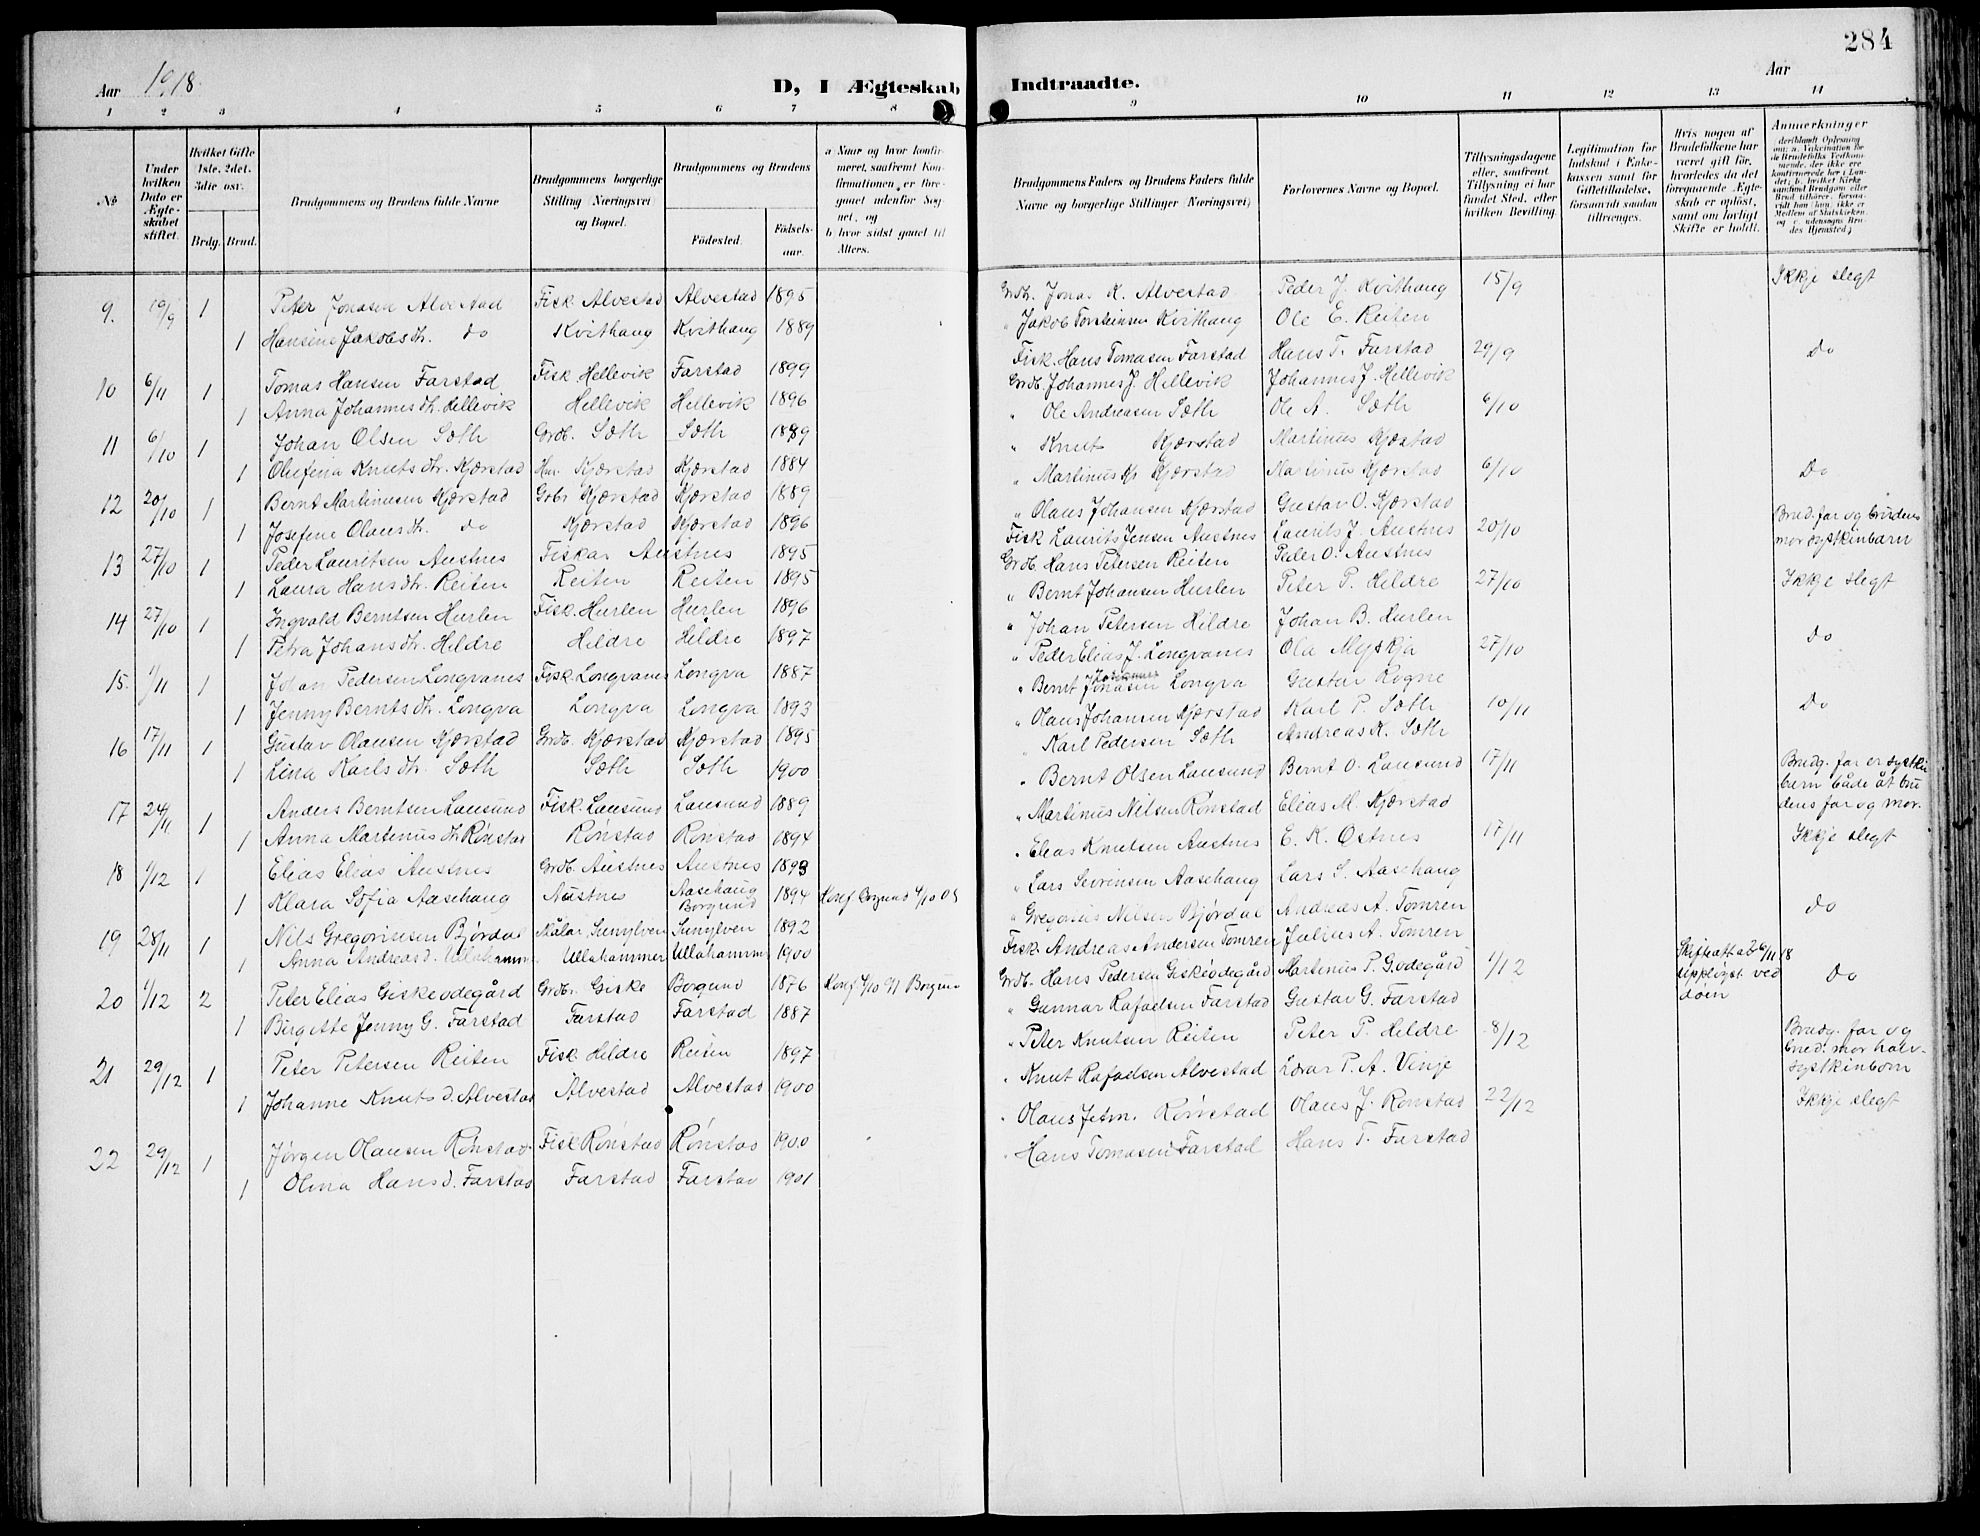 284
Aar 1918.
D, I Ægteskab Indtraadte.
Aar
1 2 3 4 5 6 7 8 9 10 11 12 13 14
№
Under hvilken Dato er Ægteskabet stiftet.
Hvilket Gifte 1ste, 2det, 3die osv.
Brdg. Brud.
Brudgommens og Brudens fulde Navne
Brudgommens borgerlige Stilling (Næringsvei) og Bopæl.
Brudgommens og Brudens
Födested.
Födselsaar.
a Naar og hvor konfirmeret, saafremt Konfirmationen er foregaaet udenfor Sognet, og
b hvor sidst gaaet til Alters.
Brudgommens Faders og Brudens Faders fulde Navne og borgerlige Stillinger (Næringsvei)
Forlovernes Navne og Bopæl.
Tillysningsdagene eller, saafremt Tillysning ei har fundet Sted, efter hvilken Bevilling.
Legitimation for Indskud i Enkekassen samt for Giftetilladelse, forsaavidt saadan tiltrænges.
Hvis nogen af Brudefolkene har været gift för, hvorledes da det foregaaende Ægteskab er oplöst, samt om lovligt Skifte er holdt.
Anmerkninger
9. 19/9 1 Peter Jonasen Alvestad Fisk. Alvestad Alvestad 1895 Grdb. Jonas K. Alvestad Peder J. Kvithaug 15/9 Ikkje slegt
1 Hansine Jakobsdtr. do Kvithaug Kvithaug 1889 " Jakob Torsteinsen Kvithaug Ole E. Reiten
10 6/11 1 Tomas Hansen Farstad Fisk Hellevik Farstad 1899 Fisk. Hans Tomasen Farstad Hans T. Farstad 29/9 do
1 Anna Johannesdtr. Hellevik Hellevik Hellevik 1896 Grdb. Johannes J. Hellevik Johannes J. Hellevik
11 6/10 1 Johan Olsen Sæth Grdb. Sæth Sæth 1889 " Ole Andreasen Sæth Ole A. Sæth 6/10
1 Olufina Knutsdtr. Kjærstad Kjærstad Kjærstad 1884 " Knut Kjærstad Martinus Kjæstad
12 20/10 1 Bernt Martinusen Kjærstad Grbr Kjærstad Kjærstad 1889 " Martinus Kjærstad Martinus Kjærstad 6/10 Do
1 Josefine Olausdtr. do Kjærstad Kjærstad 1896 " Olaus Johansen Kjærstad Gustav O. Kjærstad
13 27/10 1 Peder Lauritsen Austnes Fiskar Austnes 1895 Fisk Laurits Jensen Austnes Laurits J. Austnes 20/10 Brud. far og brudens mor systkinbarn
1 Laura Hansdtr. Reiten Reiten Reiten 1895 Grdb. Hans Petersen Reiten Peder O. Austnes
14 27/10 1 Ingvald Berntsen Hurlen Fisk. Hurlen Hurlen 1896 " Bernt Johansen Hurlen Peter P. Hildre 27/10 Ikkje slegt
1 Petra Johansdtr. Hildre Hildre Hildre 1897 " Johan Petersen Hildre Johan B. Hurlen
15. 1/11 1 Johan Pedersen Longvanes Fisk. Longvanes Longva 1887 " Peder Elias J. Longvanes Ola Myskja 27/10 do
1 Jenny Berntsdtr. Longva Longva Longva 1893 " Bernt Jonasen Longva Gustav Rogne
16 17/11 1 Gustav Olausen Kjærstad Grdb. Kjærstad Kjærstad 1895 " Olaus Johansen Kjærstad Karl P. Sæth 10/11 Do
1 Lina Karlsdtr. Sæth Sæth Sæth 1900 " Karl Pedersen Sæth Andreas K. Sæth
17 24/11 1 Anders Berntsen Lausund Fisk. Lausund Lausund 1889 " Bernt Olsen Lausund Bernt O. Lausund 17/11 Brudg. far er systkinbarn både åt brudens far og mor.
1 Anna Martinusdtr. Rönstad Rönstad Rönstad 1894 " Martinus Nilsen Rönstad Elias M. Kjærstad
18 1/12 1 Elias Elias Austnes Grdb. Austnes Austnes 1893 " Elias Knutsen Austnes E. K. Östnes 17/11 Ikkje slegt
1 Klara Sofia Aasehaug Austnes Aasehaug Borgund 1894 Konf Borgund 1/10 09 " Lars Sevrinsen Aasehaug Lars S. Aasehaug
19 28/11 1 Nils Gregoriusen Bjørdal Målar, Sunylven Sunylven 1892 " Gregorius Nilsen Bjørdal Andreas A. Tomren do
1 Anna Andreasd. Ullahammer Ullahammer Ullahammer 1900 Fisk. Andreas Andersen Tomren Julius A. Tomren
20 1/12 2 Peter Elias Giskeødegård Grdbr. Giske Borgund 1876 Konf 4/10 91 Borgund Grdb. Hans Pedersen Giskeødegård Martinus P. Godegård 1/12 Skifteatt a 26/11 18 uppløyst ved døin Do
1 Birgitte Jenny G. Farstad Farstad Farstad 1887 " Gunnar Rafaelsen Farstad Gustav G. Farstad
21 29/12 1 Peter Petersen Reiten Fisk. Hildre Reiten 1897 " Peter Knutsen Reiten Peter P. Hildre 8/12 Brudg. far og brud. mor halvsystkinborn
1 Johanne Knutsd. Alvestad Alvestad Alvestad 1900 " Knut Rafaelsen Alvestad P. A. Vinje
22 29/12 1 Jørgen Olausen Rönstad Fisk Rönstad Rönstad 1900 " Olaus Rönstad Olaus J. Rønstad 22/12 Ikkje slegt
1 Olina Hansd. Farstad Farstad Farstad 1901 " Hans Tomasen Farstad Hans T. Farstad